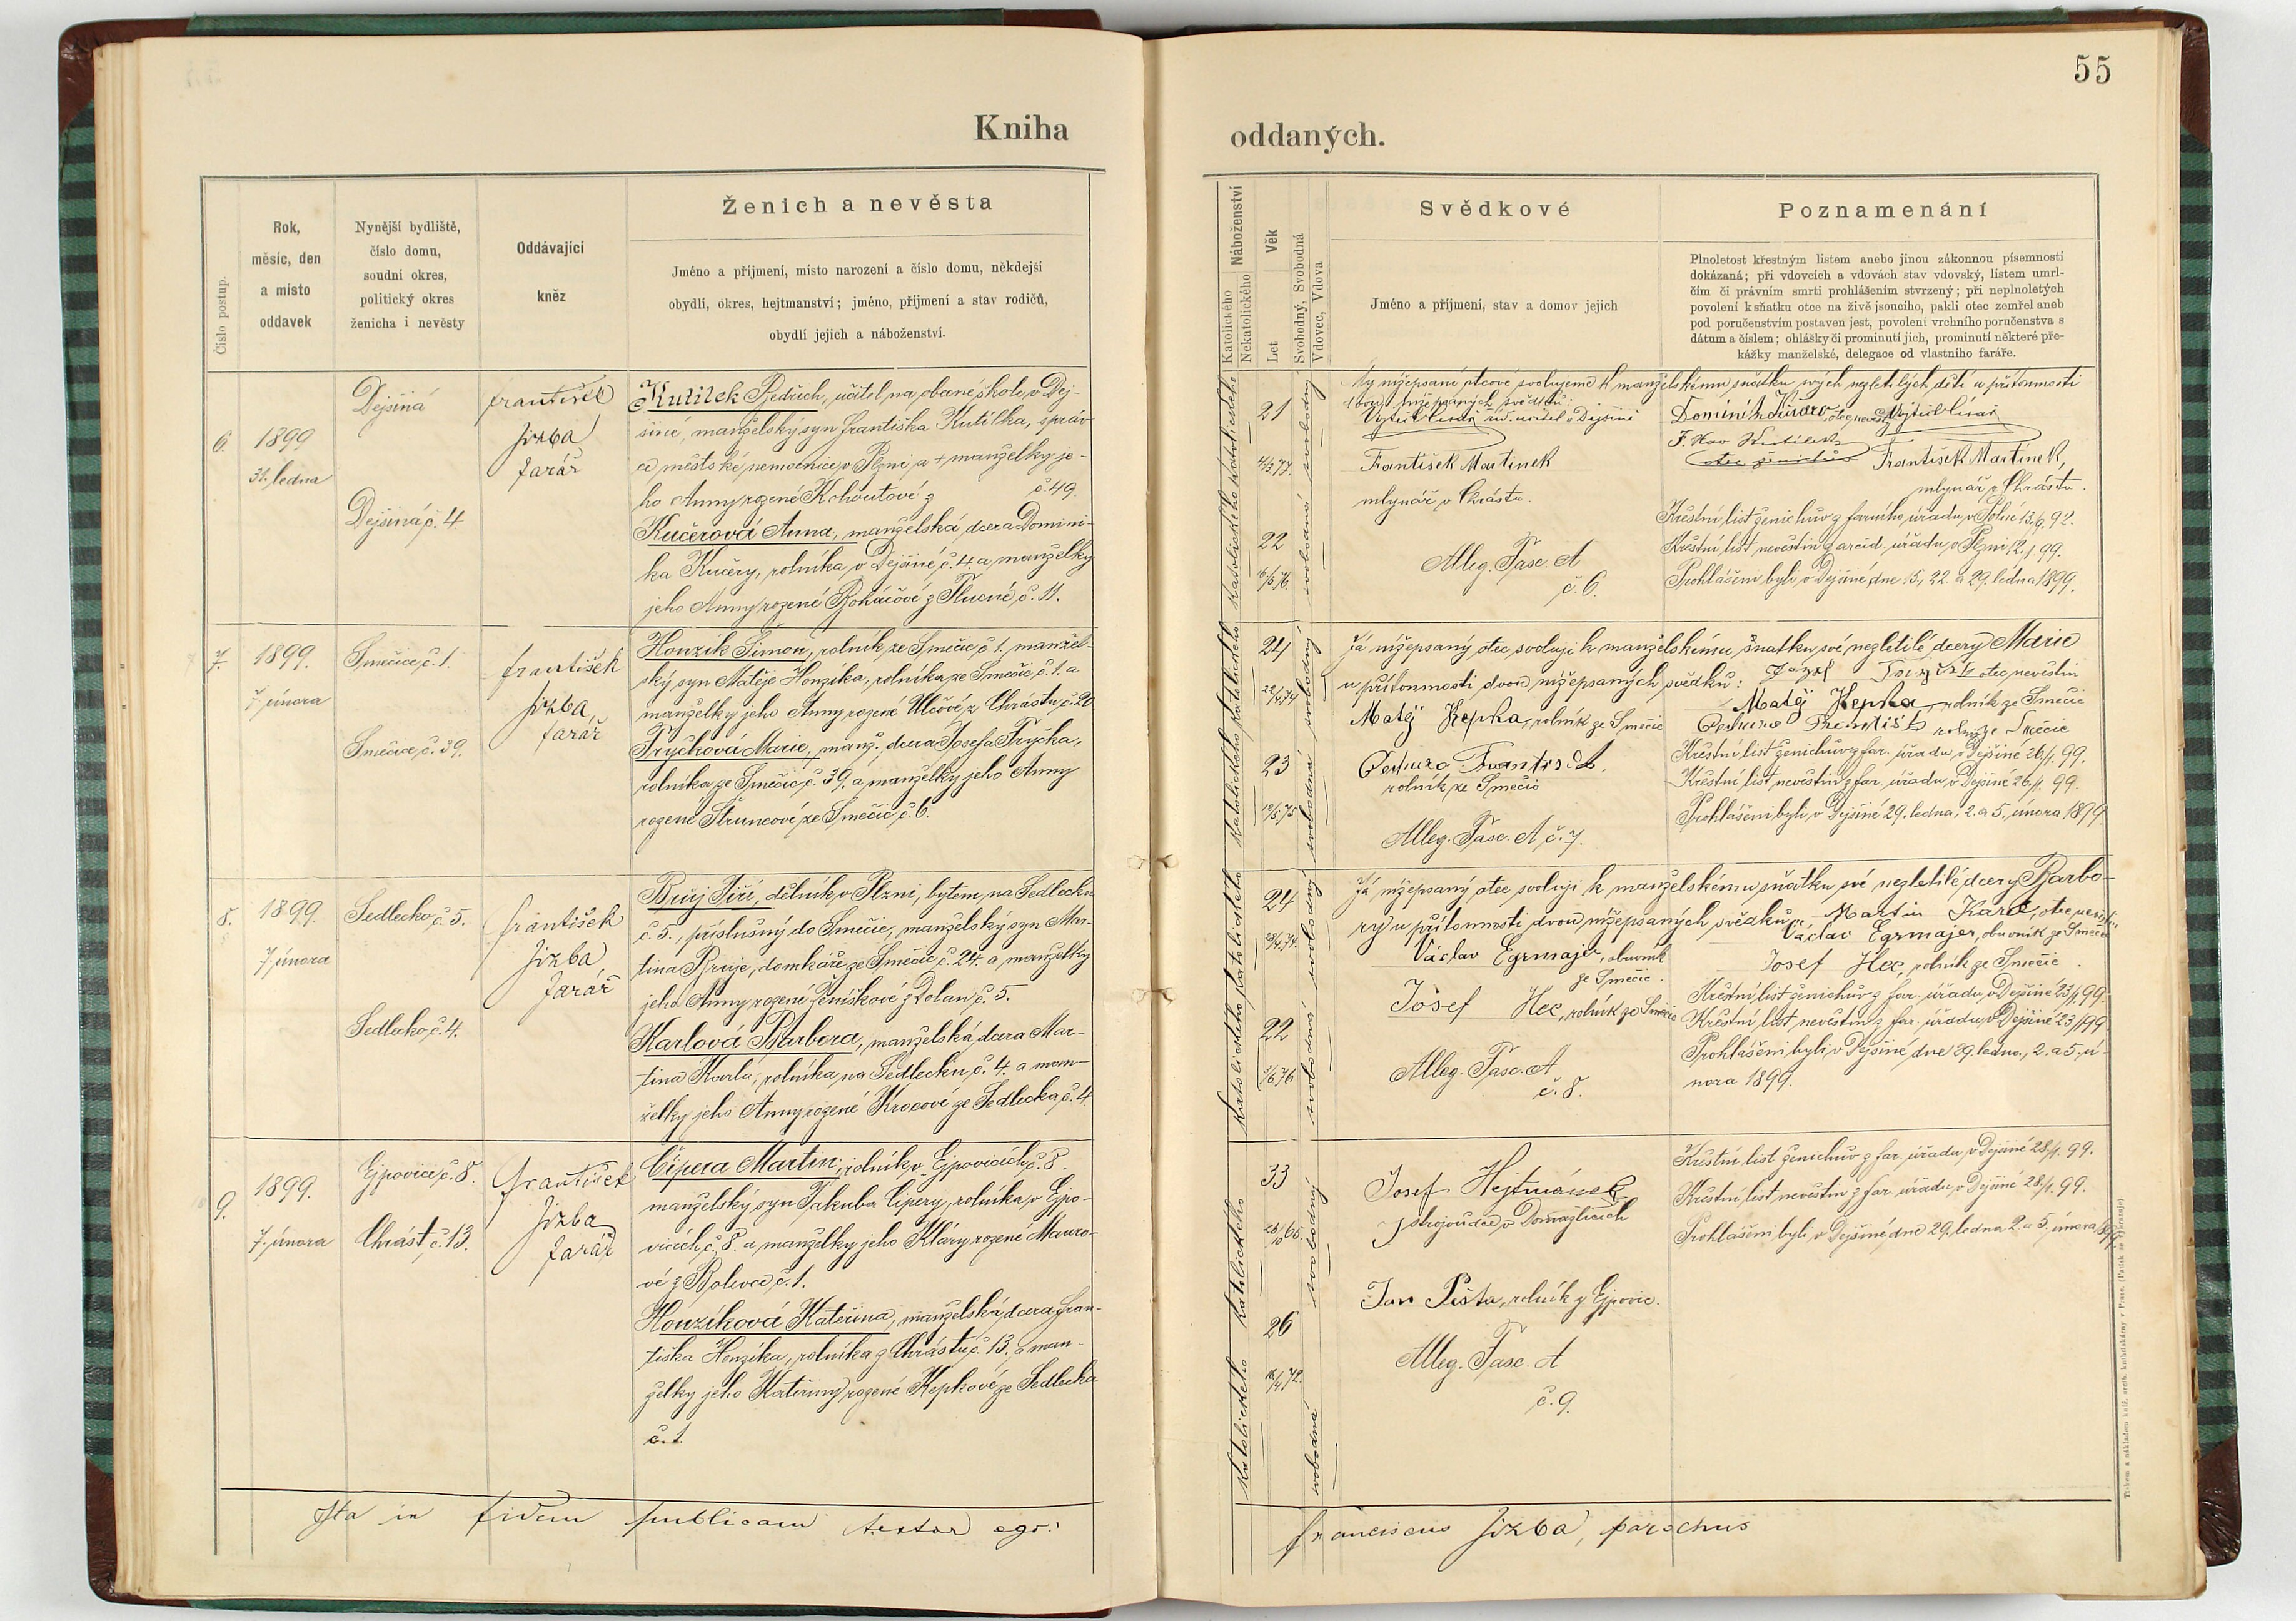 55
Kniha
oddaných.
Číslo postup.
Rok,
měsíc, den
a místo
oddavek
Nynější bydliště,
číslo domu,
soudní okres,
politický okres
ženicha i nevěsty
Oddávající
kněz
Ženich a nevěsta
Jméno a příjmení, místo narození a číslo domu, někdejší
obydlí, okres, hejtmanství; jméno, příjmení a stav rodičů,
obydlí jejich a náboženství.
6.
1899
31. ledna
Dejšiná
Dejšiná, č. 4.
František
Jizba
farář
Kutilek Bedřich, učitel na obecné škole v Dej-
šiné, manželský syn Františka Kutilka, správ-
ce městské nemocnice v Plzni, a + manželky je-
ho Anny rozené Kohoutové z č. 49.
Kučerová Anna, manželská dcera Domini-
ka Kučery, rolníka v Dejšiné, č. 4. a manželky
jeho Anny rozené Boháčové z Tlucné, č. 11.
7.
1899.
7. února
Smečice, č. 1.
Smečice, č. 39.
František
Jizba
farář
Honzík Šimon, rolník ze Smečic č. 1. manžel-
ský syn Matěje Honzíka, rolníka ze Smečic, č. 1. a
manželky jeho Anny rozené Ulčové z Chrástu, č. 20
Tryčková Marie, manž. dcera Josefa Tryčka,
rolníka ze Smečic, č. 39. a manželky jeho Anny
rozené Štruncové ze Smečic, č. 6.
8.
1899.
7. února
Sedlecko, č. 5.
Sedlecko, č. 4.
František
Jizba
farář
Bruj Jiří, dělník v Plzni, bytem na Sedlecku
č. 5., příslušný do Smečic, manželský syn Mar-
tina Bruje, domkáře ze Smečic č. 24. a manželky
jeho Anny rozené Beniškové z Dolan, č. 5.
Karlová Barbora, manželská dcera Mar-
tina Karla, rolníka na Sedlecku, č. 4. a man-
želky jeho Anny rozené Krocové ze Sedlecka, č. 4.
9.
1899.
7. února
Ejpovice, č. 8.
Chrást, č. 13.
František
Jizba
farář
Cipera Martin, rolník v Ejpovicích, č. 8.
manželský syn Jakuba Cipery, rolníka v Ejpo-
vicích, č. 8. a manželky jeho Kláry rozené Mauro-
vé z Bolevce, č. 1.
Honzíková Kateřina, manželská dcera Fran-
tiška Honzíka, rolníka z Chrástu, č. 13. a man-
želky jeho Kateřiny rozené Kepkové ze Sedlecka
č. 1.
Ita in fidem publicam testor ego:
Katolického
Nekatolického
Náboženství
Věk
Let
Svobodný, Svobodná
Vdovec, Vdova
Svědkové
Jméno a příjmení, stav a domov jejich
Poznamenání
Plnoletost křestným listem anebo jinou zákonnou písemností
dokázaná; při vdovcích a vdovách stav vdovský, listem umrl-
čím či právním smrti prohlášením stvrzený; při neplnoletých
povolení k sňatku otce na živě jsoucího, pakli otec zemřel aneb
pod poručenstvím postaven jest, povolení vrchního poručenstva s
dátum a číslem; ohlášky či prominutí jich, prominutí některé pře-
kážky manželské, delegace od vlastního faráře.
katolického
katolického
svobodný
svobodná
21
22
My nížepsaní otcové svolujeme k manželskému sňatku svých nezletilých dětí u přítomnosti
dvou nížepsaných svědků:
říd. učitel v Dejšiné
František Martinek
mlynář v Chrástu.
Alleg. Fasc. A
č. 6.
Dominik Kučera, otec nevěsty
otec ženichův
František Martinek,
mlynář v Chrástu.
Křestní list ženichův z farního úřadu v 13/9. 92.
Křestní list nevěstin z arcid. úřadu v Plzni 12./1. 99.
Prohlášeni byli v Dejšiné dne 15., 22. a 29. ledna 1899.
katolického
katolického
svobodný
svobodná
24
22/1 74
23
12/5 75
Já nížepsaný otec svoluji k manželskému sňatku své nezletilé dcery Marie
u přítomnosti dvou nížepsaných svědků:
otec nevěstin
Matěj Kepka, rolník ze Smečic
František
rolník ze Smečic
Alleg. Fasc. A, č. 7.
Matěj Kepka, rolník ze Smečic
rolník ze Smečic
Křestní list ženichův z far. úřadu v Dejšiné 26./1. 99.
Křestní list nevěstin z far. úřadu v Dejšiné 26./1. 99.
Prohlášeni byli v Dejšiné 29. ledna, 2. a 5. února 1899
katolického
katolického
svobodný
svobodná
24
22
Já nížepsaný otec svoluji k manželskému sňatku své nezletilé dcery Barbo-
ry u přítomnosti dvou nížepsaných svědků: Martin Karel, otec nevěstin
Václav Egrmajer, obuvník
ze Smečic.
Josef Hec, rolník ze Smečic
Alleg. Fasc. A
č. 8.
Václav Egrmajer, obuvník ze Smečic
Josef Hec, rolník ze Smečic.
Křestní list ženichův z far. úřadu v Dejšiné 23/1. 99.
Křestní list nevěstin z far. úřadu v Dejšiné 23/1 99
Prohlášeni byli v Dejšiné dne 29. ledna, 2. a 5. ú-
nora 1899.
katolického
katolického
svobodný
svobodná
33
26
Josef Hejtmánek
strojvůdce v Domažlicích
Jan Pišta, rolník z Ejpovic.
Alleg. Fasc. A
č. 9.
Křestní list ženichův z far. úřadu v Dejšiné 28./1. 99.
Křestní list nevěstin z far. úřadu v Dejšiné 28./1. 99.
Prohlášeni byli v Dejšiné dne 29. ledna, 2. a 5. února 1899.
Franciscus Jizba, parochus